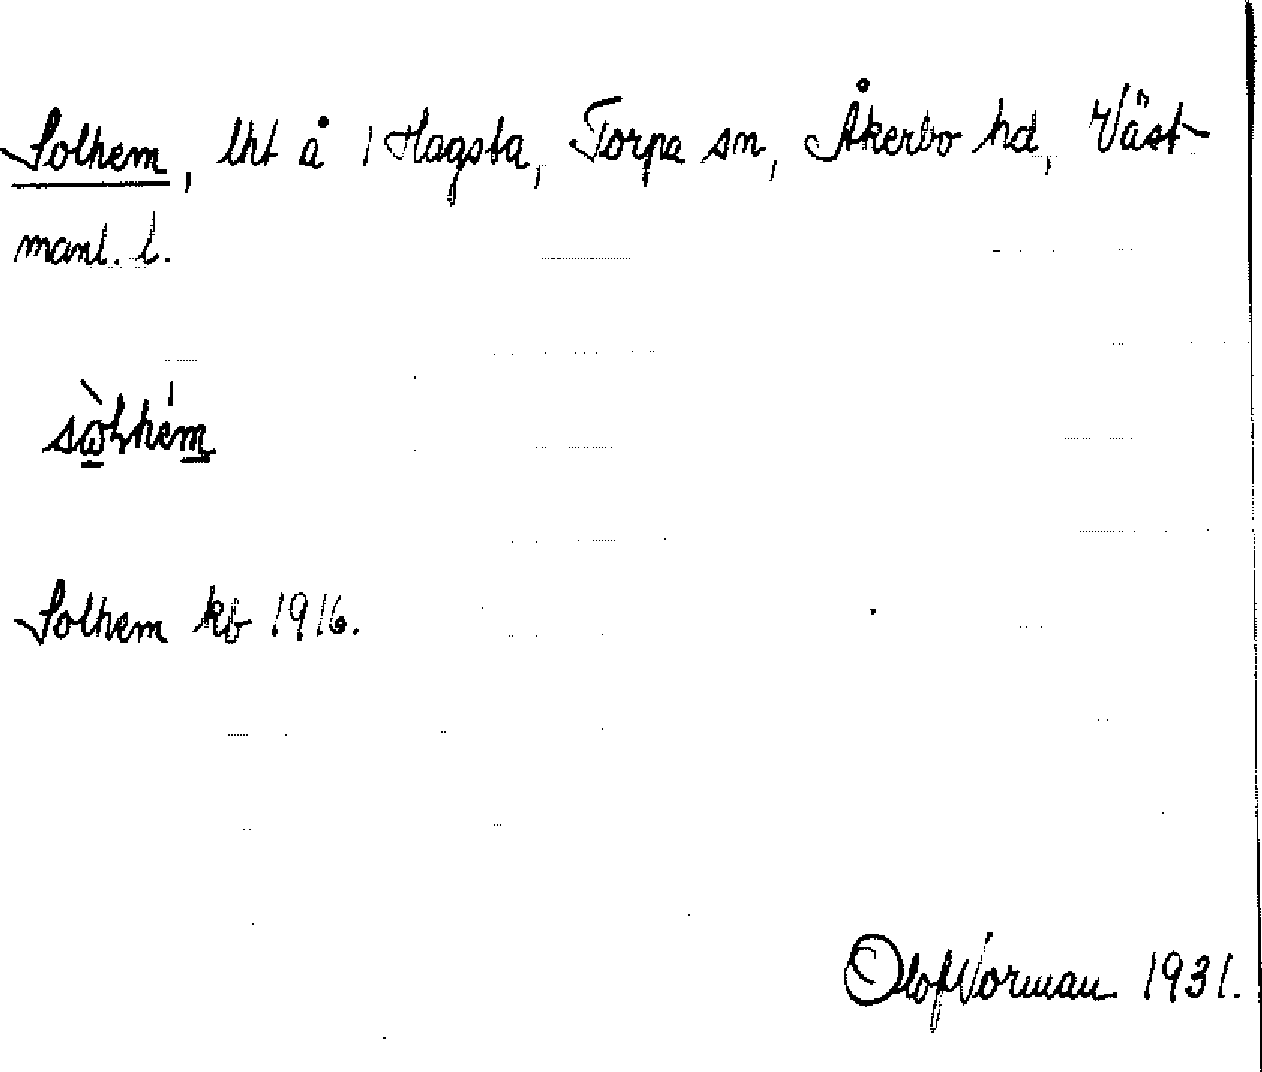 Solhem, lht å 1 Hagsta, Torpa sn, Åkerbo hd, Väst-
manl. l.
Solhem kb 1916.
Olof Norman 1931.